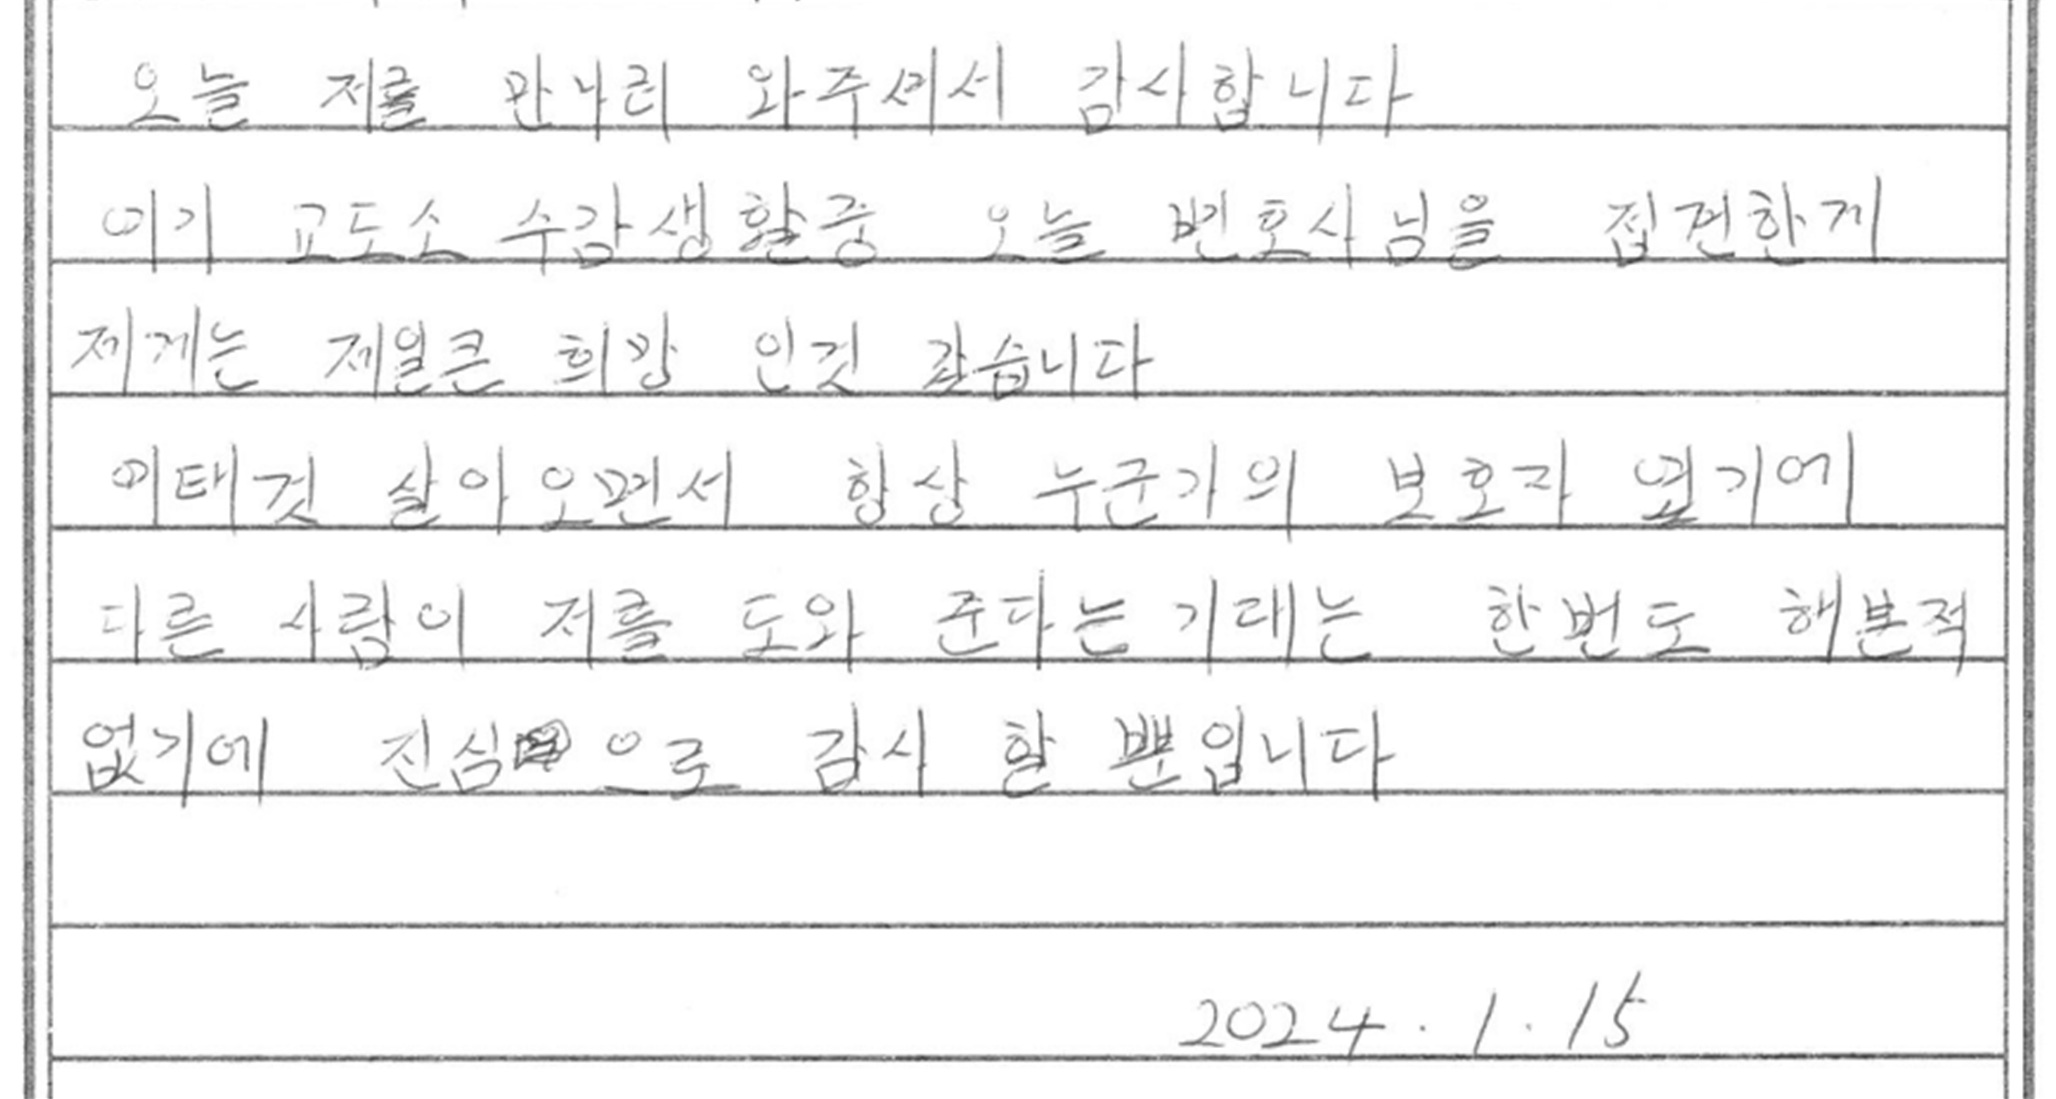 오늘 저를 만나러 와주셔서 감사합니다
여기 교도소 수감생활중 오늘 변호사님을 접견한게
제게는 제일큰 희망 인것 같습니다
이태것 살아오면서 항상 누군가의 보호자 였기에
다른 사람이 저를 도와 준다는 기대는 한번도 해본적
없기에 진심으로 감사 할 뿐입니다
2024. 1. 15